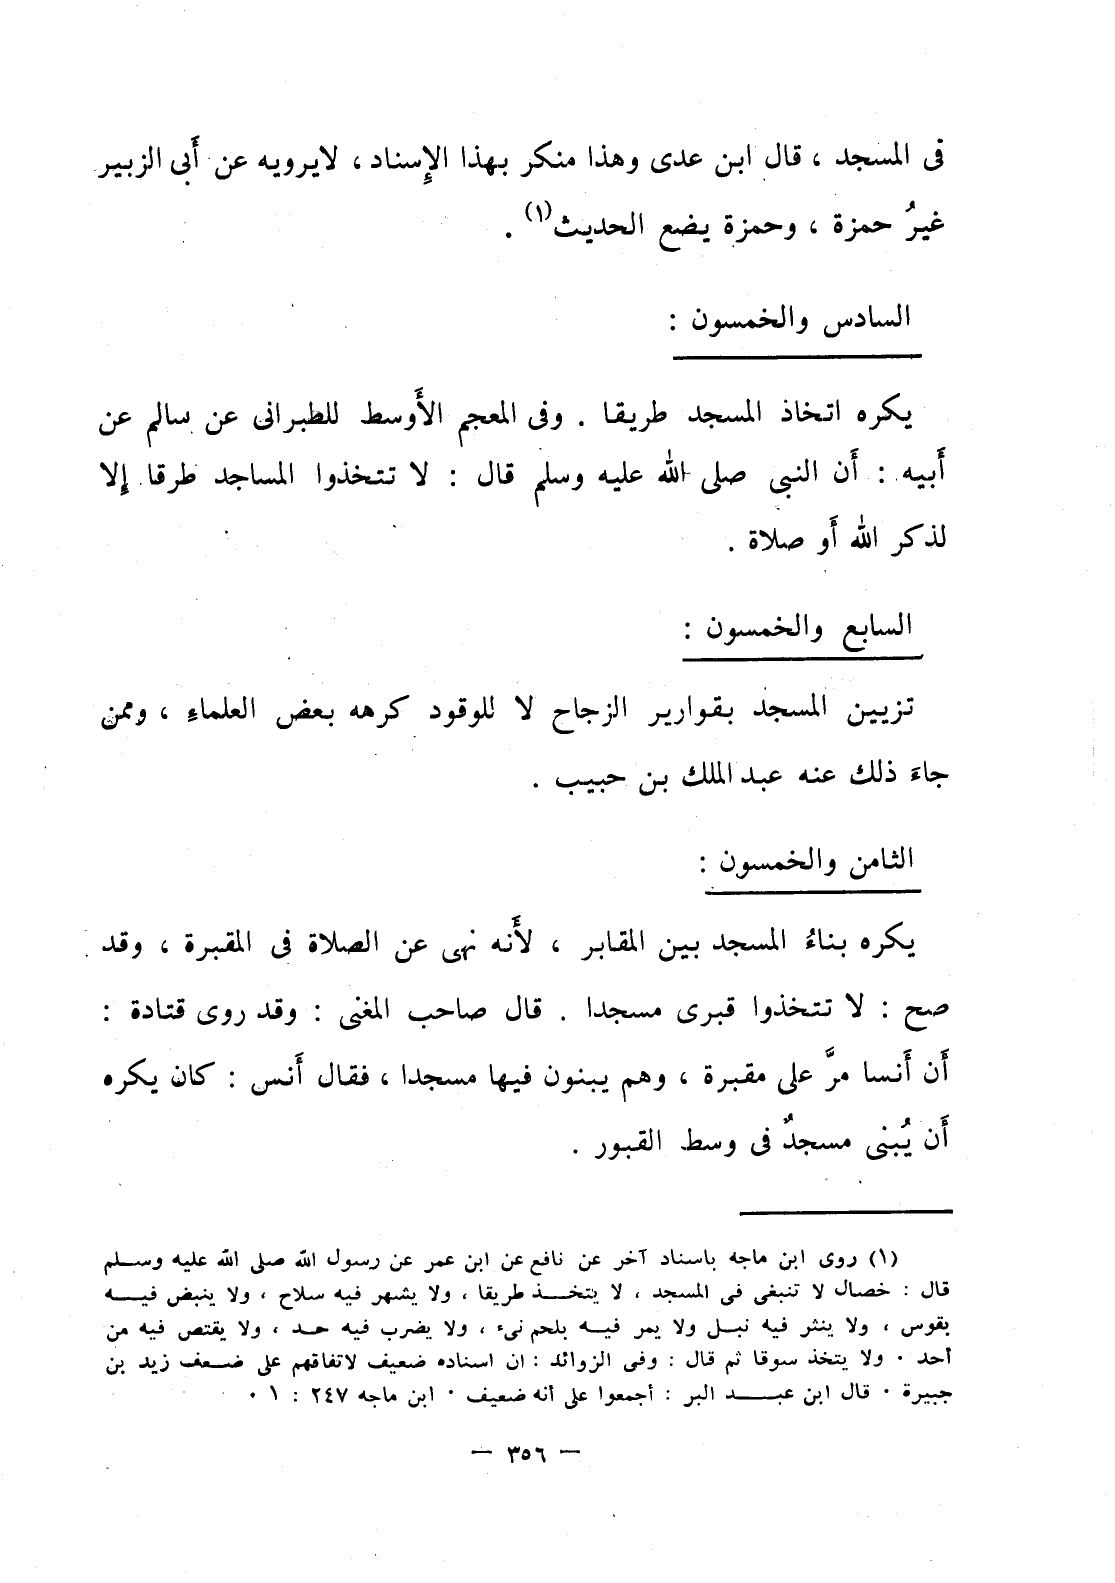 فى المسجد ، قال ابن عدى وهذا منكر بهذا الإِسناد ، لايرويه عن أَبى الزبير
غيرُ حمزة ، وحمزة يضع الحديث(١) .
السادس والخمسون :
يكره اتخاذ المسجد طريقا . وفى المعجم الأَوسط للطبرانى عن سالم عن
أَبيه : أَن النبى صلى الله عليه وسلم قال : لا تتخذوا المساجد طرقا إِلا
لذكر الله أَو صلاة .
السابع والخمسون :
تزيين المسجد بقوارير الزجاح لا للوقود كرهه بعض العلماءِ ، وممن
جاءَ ذلك عنه عبد الملك بن حبيب .
الثامن والخمسون :
يكره بناءُ المسجد بين المقابر ، لأَنه نهى عن الصلاة فى المقبرة ، وقد
صح : لا تتخذوا قبرى مسجدا . قال صاحب المغنى : وقد روى قتادة :
أَن أَنسا مرَّ على مقبرة ، وهم يبنون فيها مسجدا ، فقال أَنس : كان يكره
أَن يُبنى مسجدٌ فى وسط القبور .
(١) روى ابن ماجه باسناد آخر عن نافع عن ابن عمر عن رسول الله صلى الله عليه وسلم
قال : خصال لا تنبغى فى المسجد ، لا يتخذ طريقا ، ولا يشهر فيه سلاح ، ولا ينبض فيه
بقوس ، ولا ينثر فيه نبل ولا يمر فيه بلحم نىء ، ولا يضرب فيه حد ، ولا يقتص فيه من
أحد . ولا يتخذ سوقا ثم قال : وفى الزوائد : ان اسناده ضعيف لاتفاقهم على ضعف زيد بن
جبيرة . قال ابن عبد البر : أجمعوا على أنه ضعيف . ابن ماجه ٢٤٧ : ١ .
— ٣٥٦ —